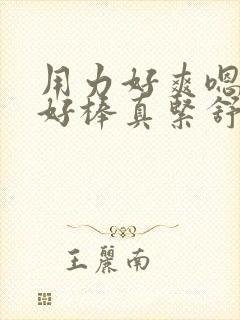 用力好爽嗯
好棒真緊舒
王麗南